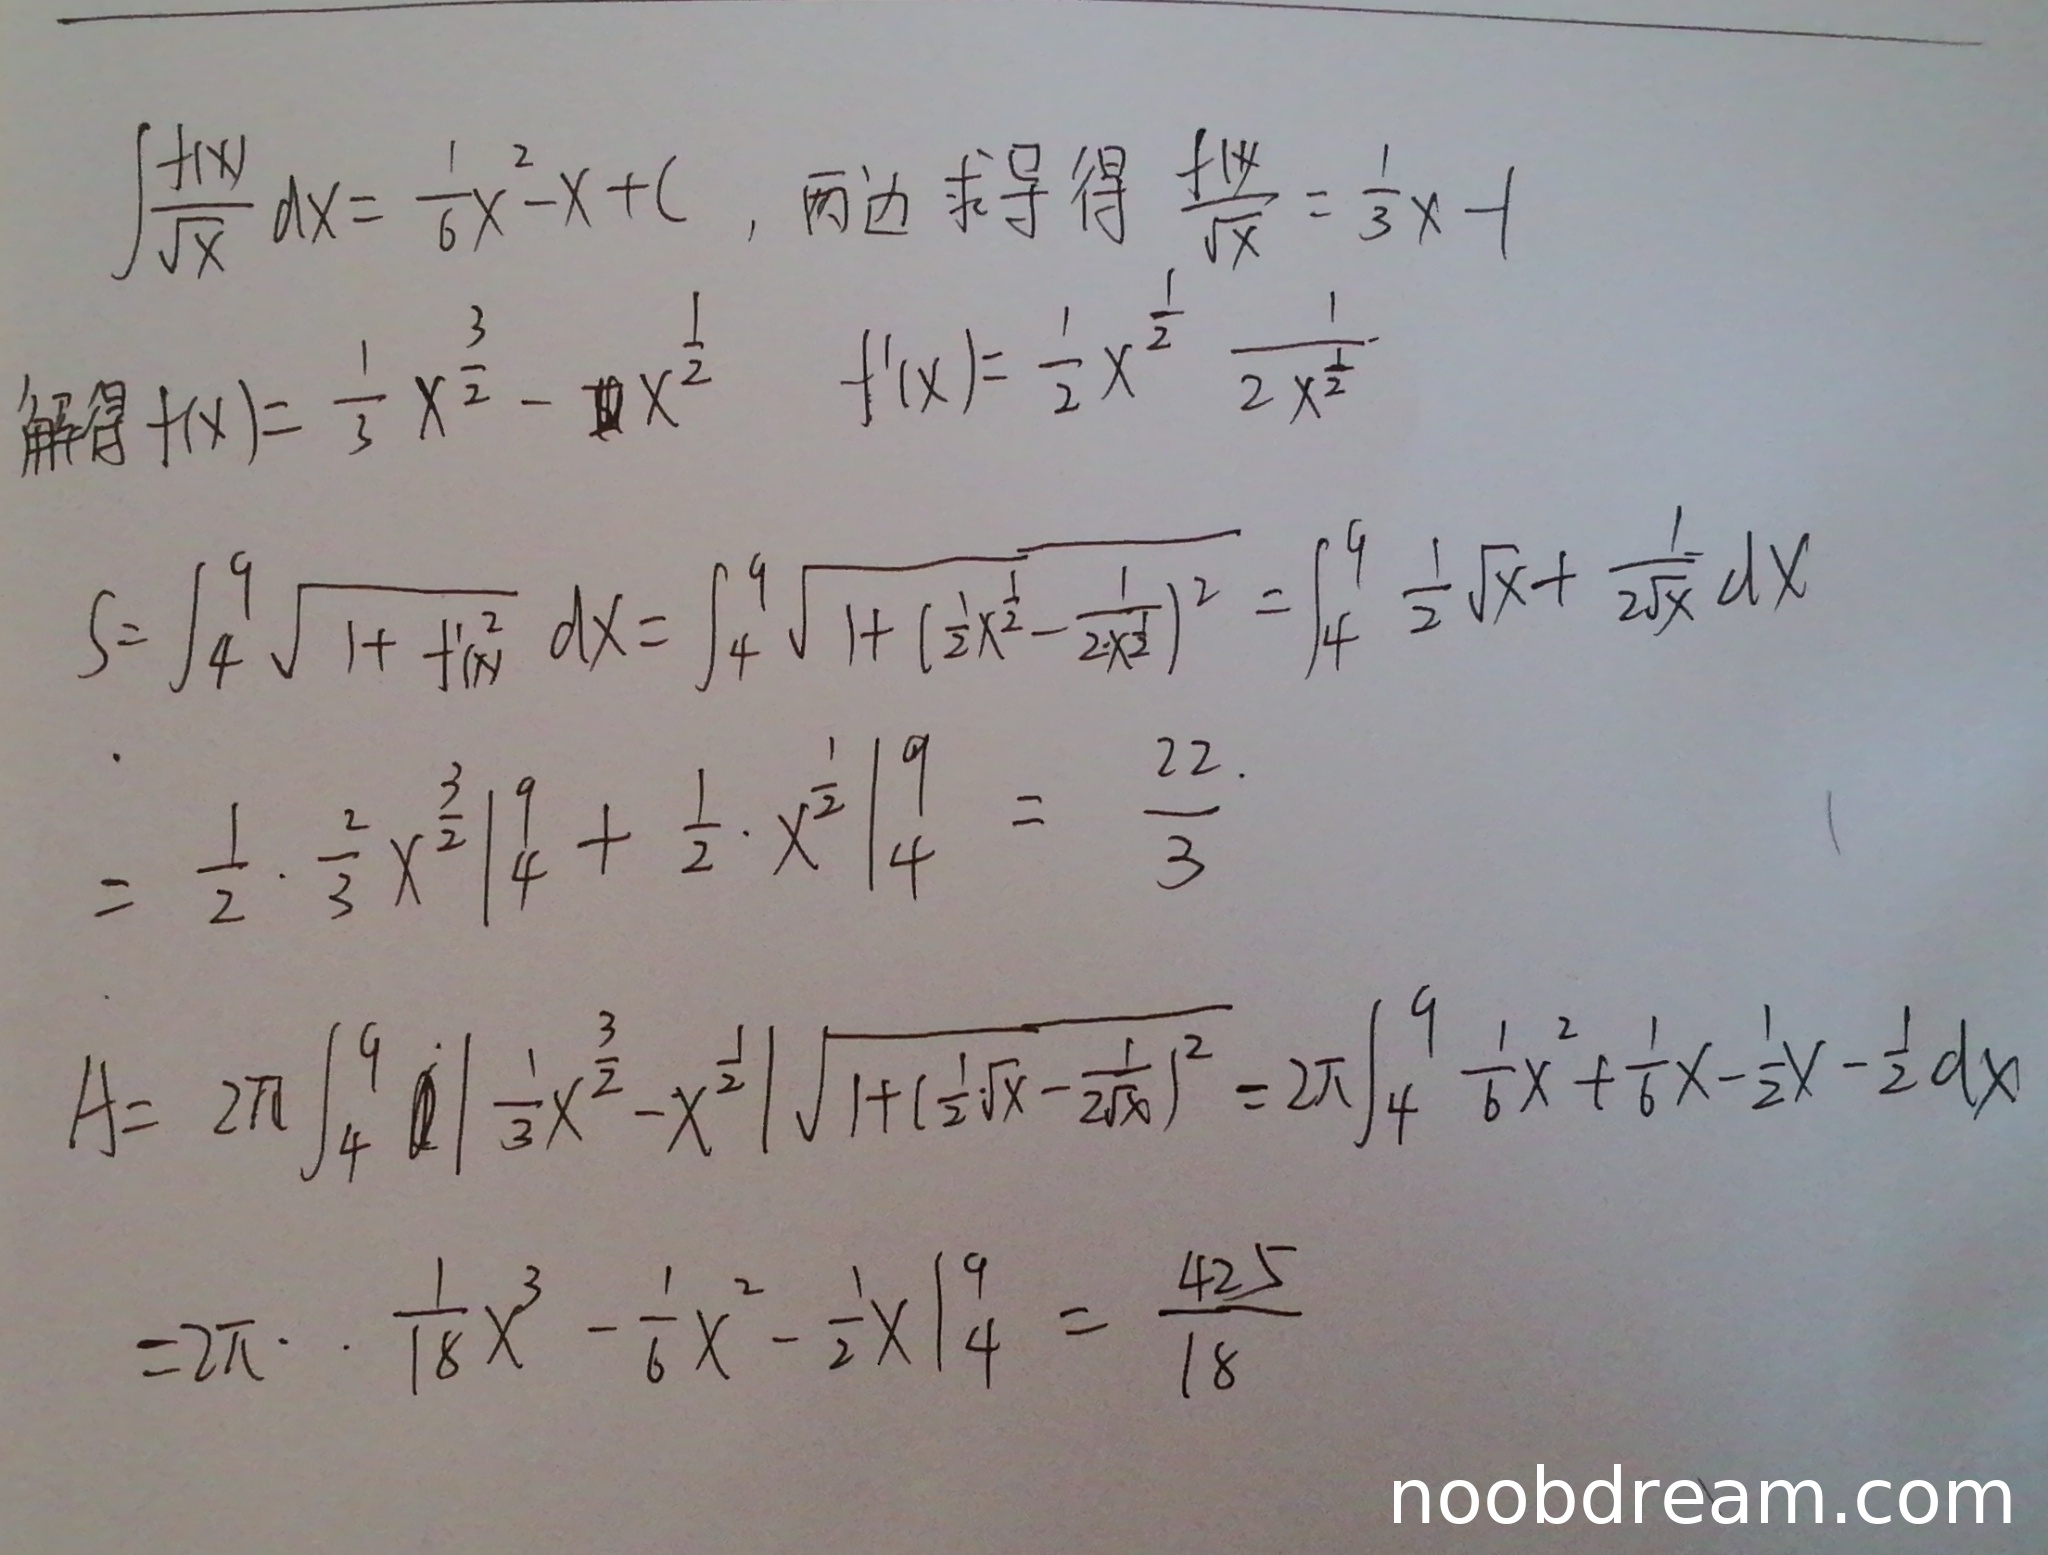 ∫ f(x)/√x dx = 1/6 x² - x + C , 两边求导得 f(x)/√x = 1/3 x - 1
解得 f(x) = 1/3 x^(3/2) - x^(1/2) f'(x) = 1/2 x^(1/2) 1/(2x^(1/2))
S = ∫₄⁹ √(1 + f'(x)²) dx = ∫₄⁹ √(1 + (1/2 x^(1/2) - 1/(2·x^(1/2)))²) = ∫₄⁹ 1/2 √x + 1/(2√x) dx
= 1/2 · 2/3 x^(3/2) |₄⁹ + 1/2 · x^(1/2) |₄⁹ = 22/3
A = 2π ∫₄⁹ | 1/3 x^(3/2) - x^(1/2) | √(1 + (1/2 √x - 1/(2√x))²) = 2π ∫₄⁹ 1/6 x² + 1/6 x - 1/2 x - 1/2 dx
= 2π · · 1/18 x³ - 1/6 x² - 1/2 x |₄⁹ = 425/18
noobdream.com